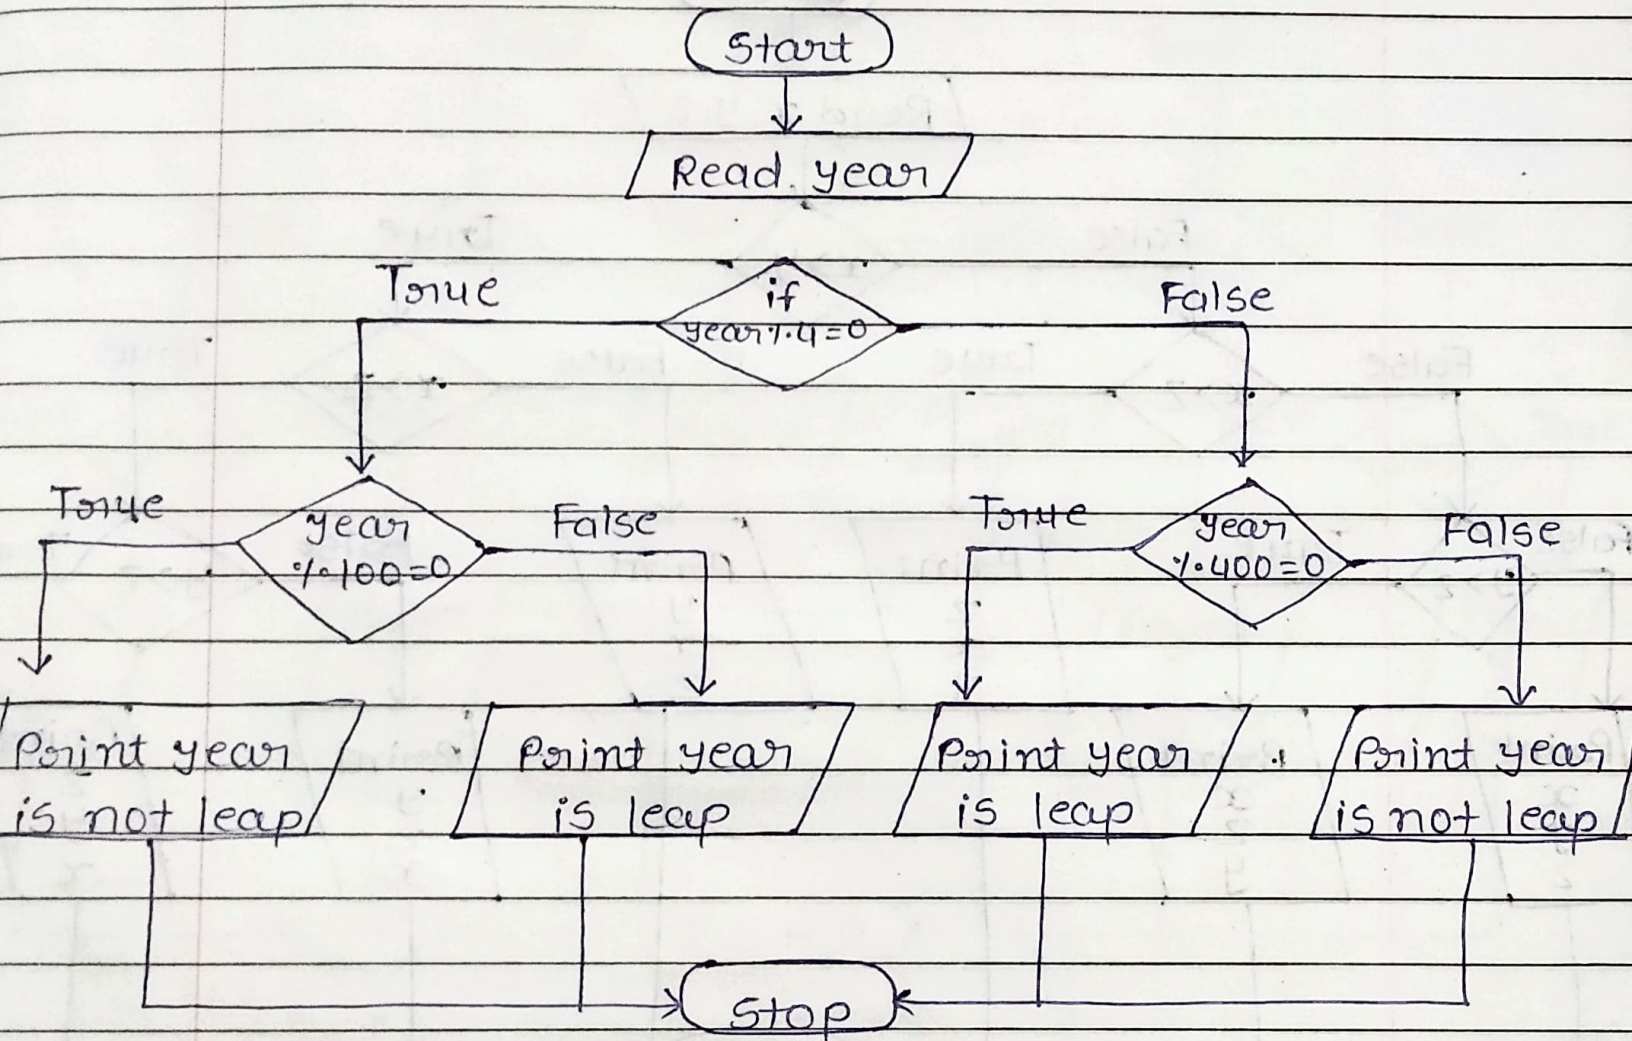 Start
Read year
True
if
year%4=0
False
True
year
%100=0
False
True
year
%400=0
False
Print year
is not leap
Print year
is leap
Print year
is leap
Print year
is not leap
Stop